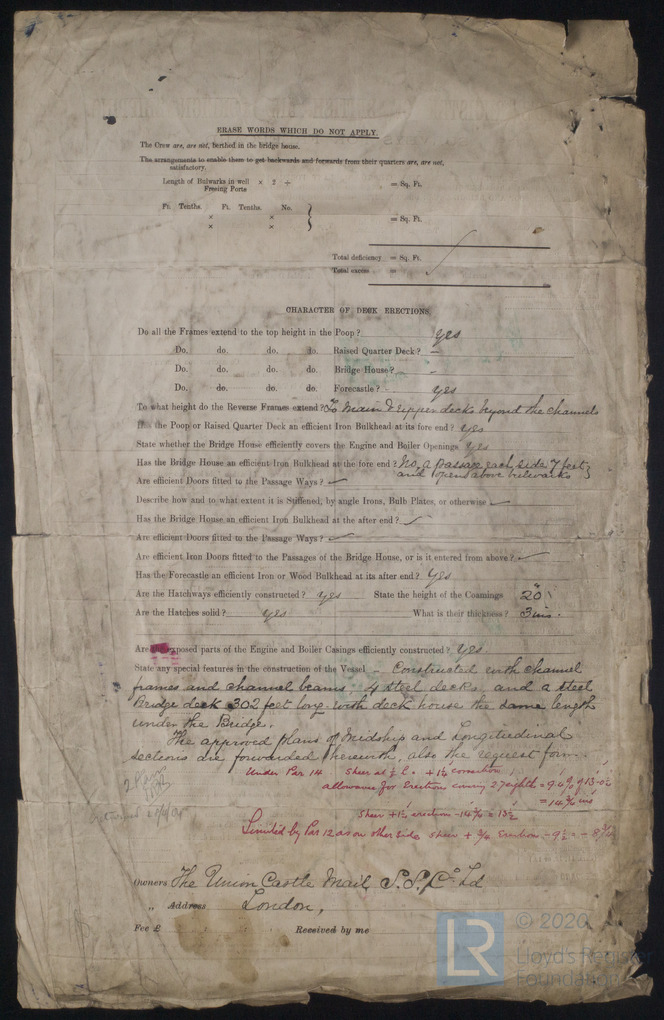 ERASE WORDS WHICH DO NOT APPLY.
The Crew are, are not, berthed in the bridge house.
The arrangements to enable them to get backwards and forwards from their quarters are, are not,
satisfactory.
Length of Bulwarks in well × 2 ÷ = Sq. Ft.
Freeing Ports
Ft. Tenths. Ft. Tenths. No.
× ×
= Sq. Ft.
× ×
Total deficiency = Sq. Ft.
Total excess =
CHARACTER OF DECK ERECTIONS.
Do all the Frames extend to the top height in the Poop? Yes
Do. do. do. do. Raised Quarter Deck? –
Do. do. do. do. Bridge House? –
Do. do. do. do. Forecastle? Yes
To what height do the Reverse Frames extend? To Main & Upper decks beyond the channels
Has the Poop or Raised Quarter Deck an efficient Iron Bulkhead at its fore end? Yes
State whether the Bridge House efficiently covers the Engine and Boiler Openings Yes
Has the Bridge House an efficient Iron Bulkhead at the fore end? No, a passage each side 7 feet;
and open above bulwarks
Are efficient Doors fitted to the Passage Ways?
Describe how and to what extent it is Stiffened, by angle Irons, Bulb Plates, or otherwise
Has the Bridge House an efficient Iron Bulkhead at the after end?
Are efficient Doors fitted to the Passage Ways?
Are efficient Iron Doors fitted to the Passages of the Bridge House, or is it entered from above?
Has the Forecastle an efficient Iron or Wood Bulkhead at its after end? Yes
Are the Hatchways efficiently constructed? Yes State the height of the Coamings 20"
Are the Hatches solid? Yes What is their thickness? 3 ins.
Are the exposed parts of the Engine and Boiler Casings efficiently constructed? Yes.
State any special features in the construction of the Vessel – Constructed with channel
frames and channel beams, 4 steel decks, and a steel
Bridge deck 302 feet long, with deck houses the same length
under the Bridge.
The approved plans of Midship and Longitudinal
sections are forwarded herewith, also the request form.
2 Plans
Under Par 14 Sheer at ½ L. + 1½ correction
allowance for Erections
Sheer + 1½ erection – 14
Limited by Par 12 as on other side sheer + ¾ Erection – 9½ =
Owners The Union Castle Mail S.S. Co. Ld
„ Address London,
Fee £ Received by me
LR
© 2020
Lloyd's Register
Foundation